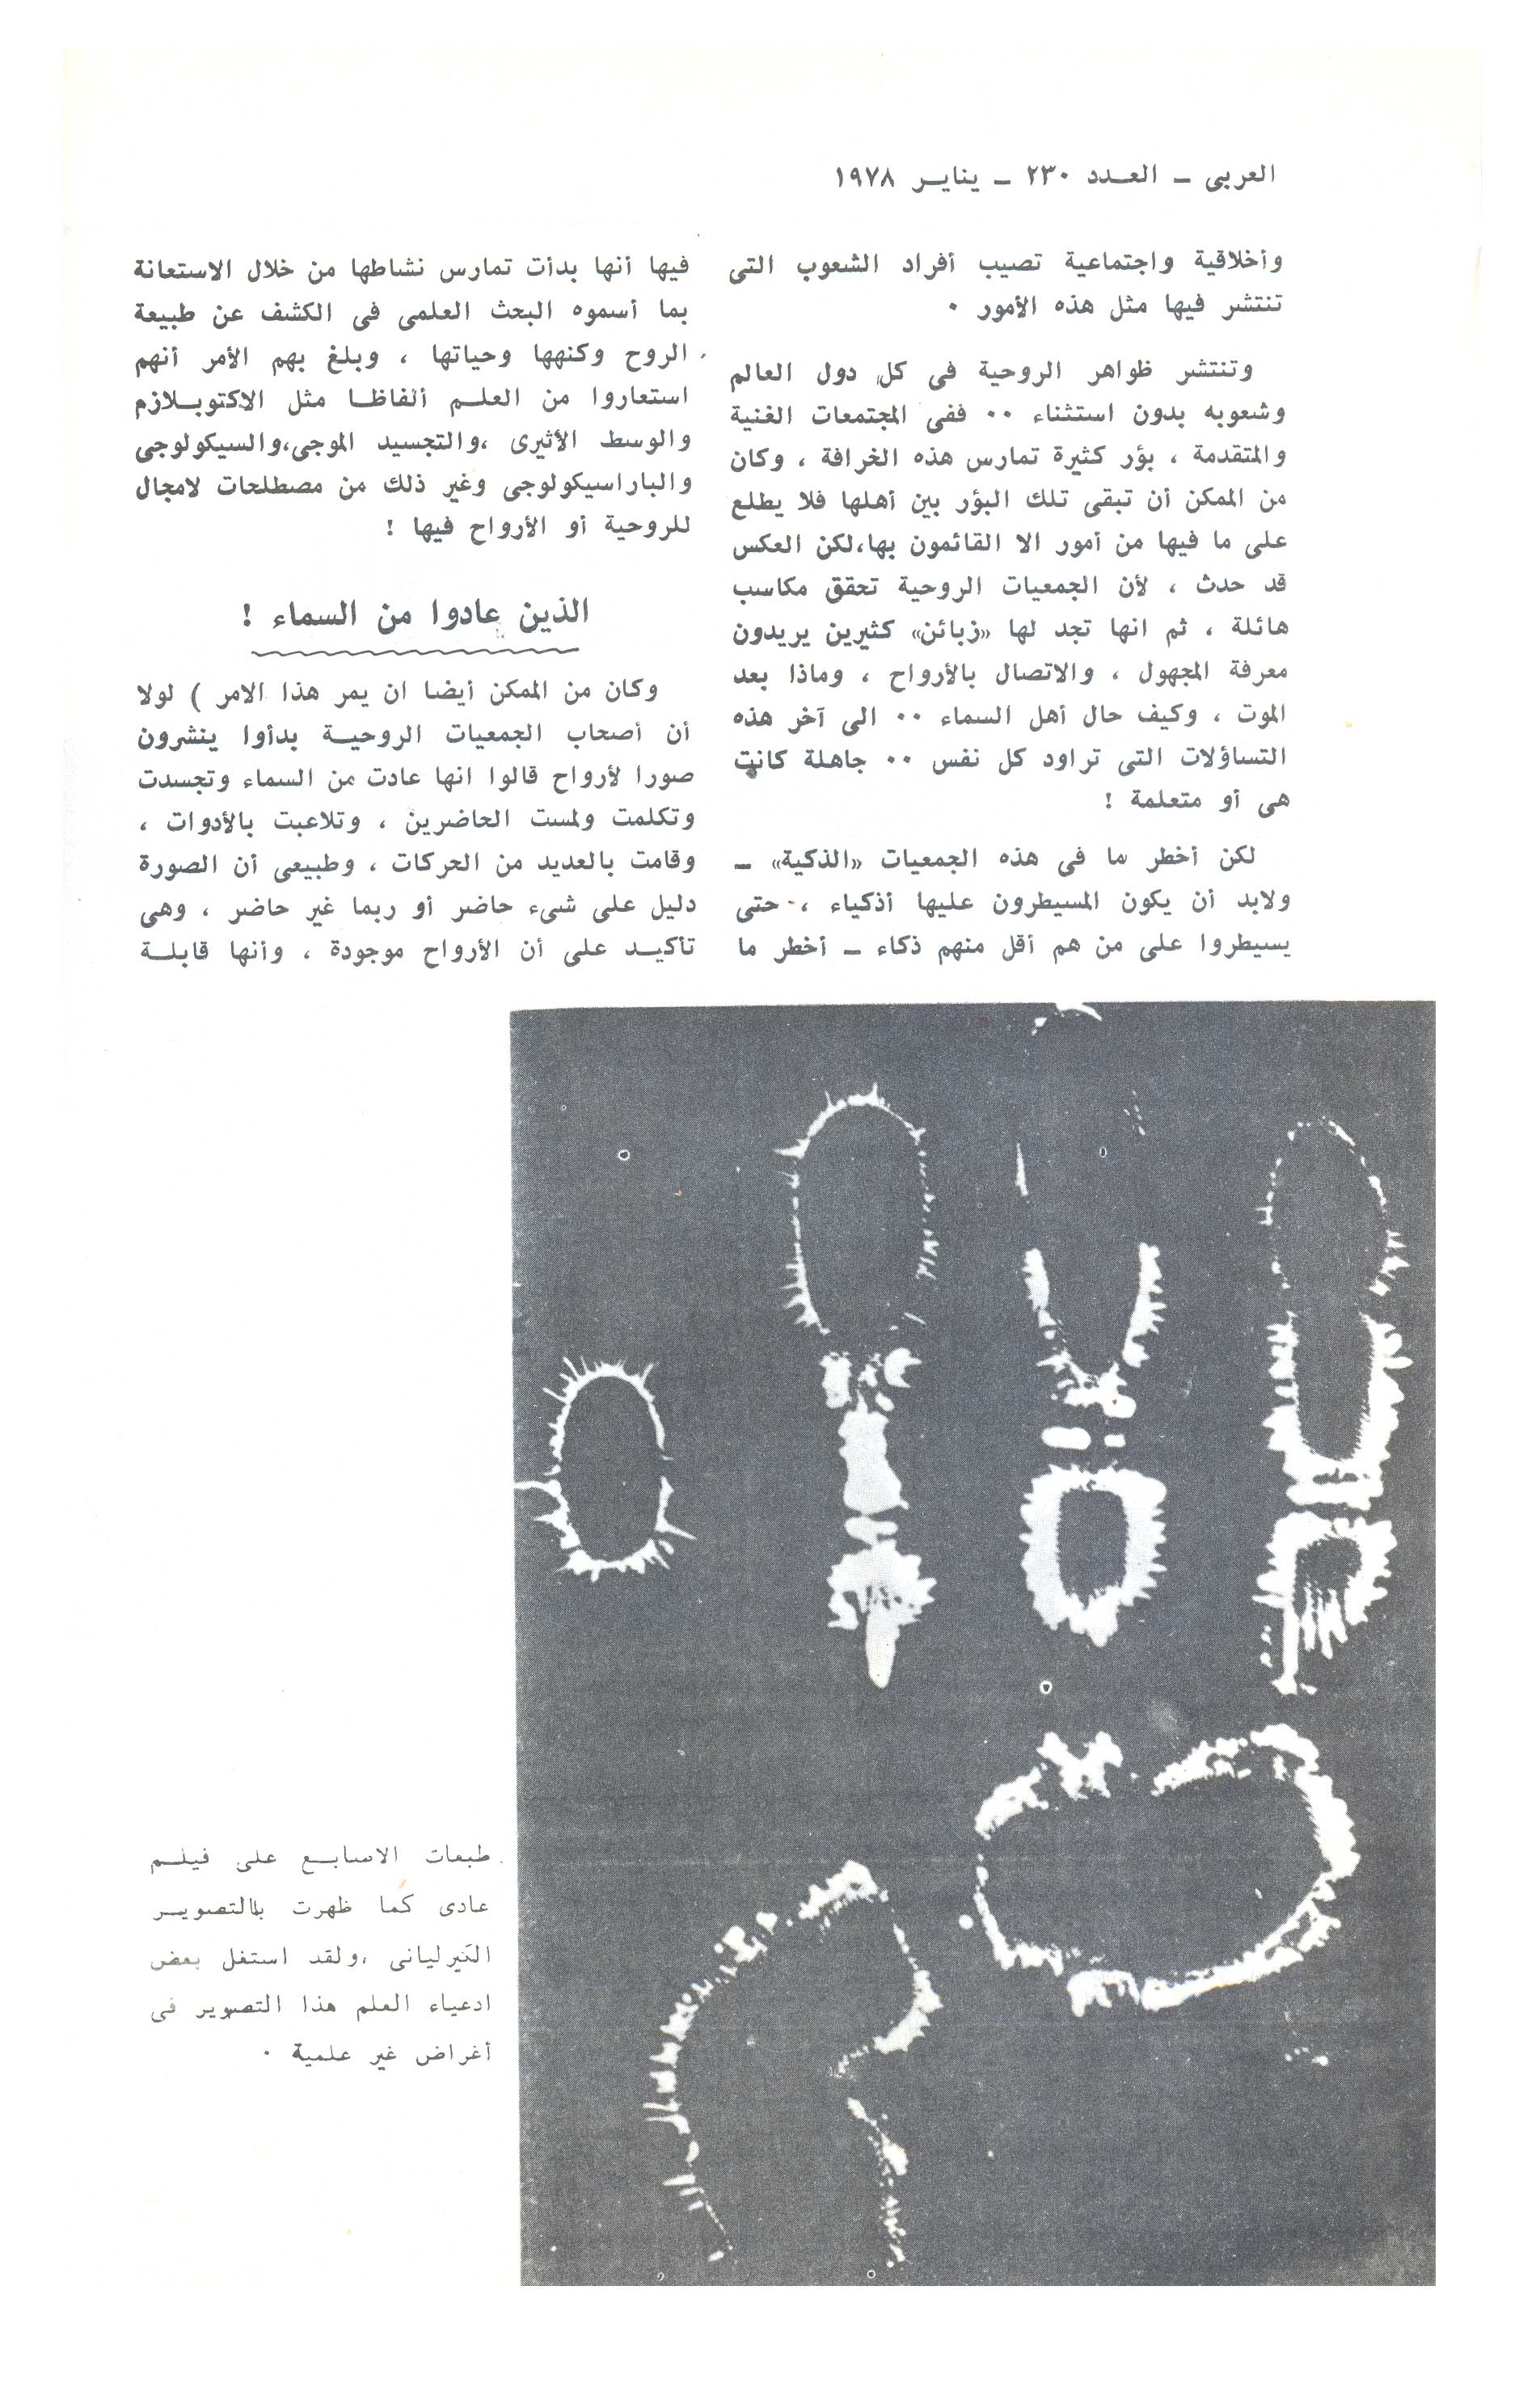 العربى – العـدد ٢٣٠ – ينايـر ١٩٧٨
وأخلاقية واجتماعية تصيب أفراد الشعوب التى
تنتشر فيها مثل هذه الأمور ٠
وتنتشر ظواهر الروحية فى كل دول العالم
وشعوبه بدون استثناء ٠٠ ففى المجتمعات الغنية
والمتقدمة ، بؤر كثيرة تمارس هذه الخرافة ، وكان
من الممكن أن تبقى تلك البؤر بين أهلها فلا يطلع
على ما فيها من أمور الا القائمون بها،لكن العكس
قد حدث ، لأن الجمعيات الروحية تحقق مكاسب
هائلة ، ثم انها تجد لها «زبائن» كثيرين يريدون
معرفة المجهول ، والاتصال بالأرواح ، وماذا بعد
الموت ، وكيف حال أهل السماء ٠٠ الى آخر هذه
التساؤلات التى تراود كل نفس ٠٠ جاهلة كانت
هى أو متعلمة !
لكن أخطر ما فى هذه الجمعيات «الذكية» –
ولابد أن يكون المسيطرون عليها أذكياء ، حتى
يسيطروا على من هم أقل منهم ذكاء – أخطر ما
فيها أنها بدأت تمارس نشاطها من خلال الاستعانة
بما أسموه البحث العلمى فى الكشف عن طبيعة
الروح وكنهها وحياتها ، وبلغ بهم الأمر أنهم
استعاروا من العلـم ألفاظـا مثل الاكتوبـلازم
والوسط الأثيرى ،والتجسيد الموجى،والسيكولوجى
والباراسيكولوجى وغير ذلك من مصطلحات لامجال
للروحية أو الأرواح فيها !
الذين عادوا من السماء !
وكان من الممكن أيضا ان يمر هذا الامر ) لولا
أن أصحاب الجمعيات الروحيـة بدأوا ينشرون
صورا لأرواح قالوا انها عادت من السماء وتجسدت
وتكلمت ولمست الحاضرين ، وتلاعبت بالأدوات ،
وقامت بالعديد من الحركات ، وطبيعى أن الصورة
دليل على شىء حاضر أو ربما غير حاضر ، وهى
تأكيـد على أن الأرواح موجودة ، وأنها قابلـة
طبعات الاصابـع على فيلـم
عادى كما ظهرت بالتصويـر
الكيرليانى ،ولقد استغل بعض
ادعياء العلم هذا التصوير فى
أغراض غير علمية ٠